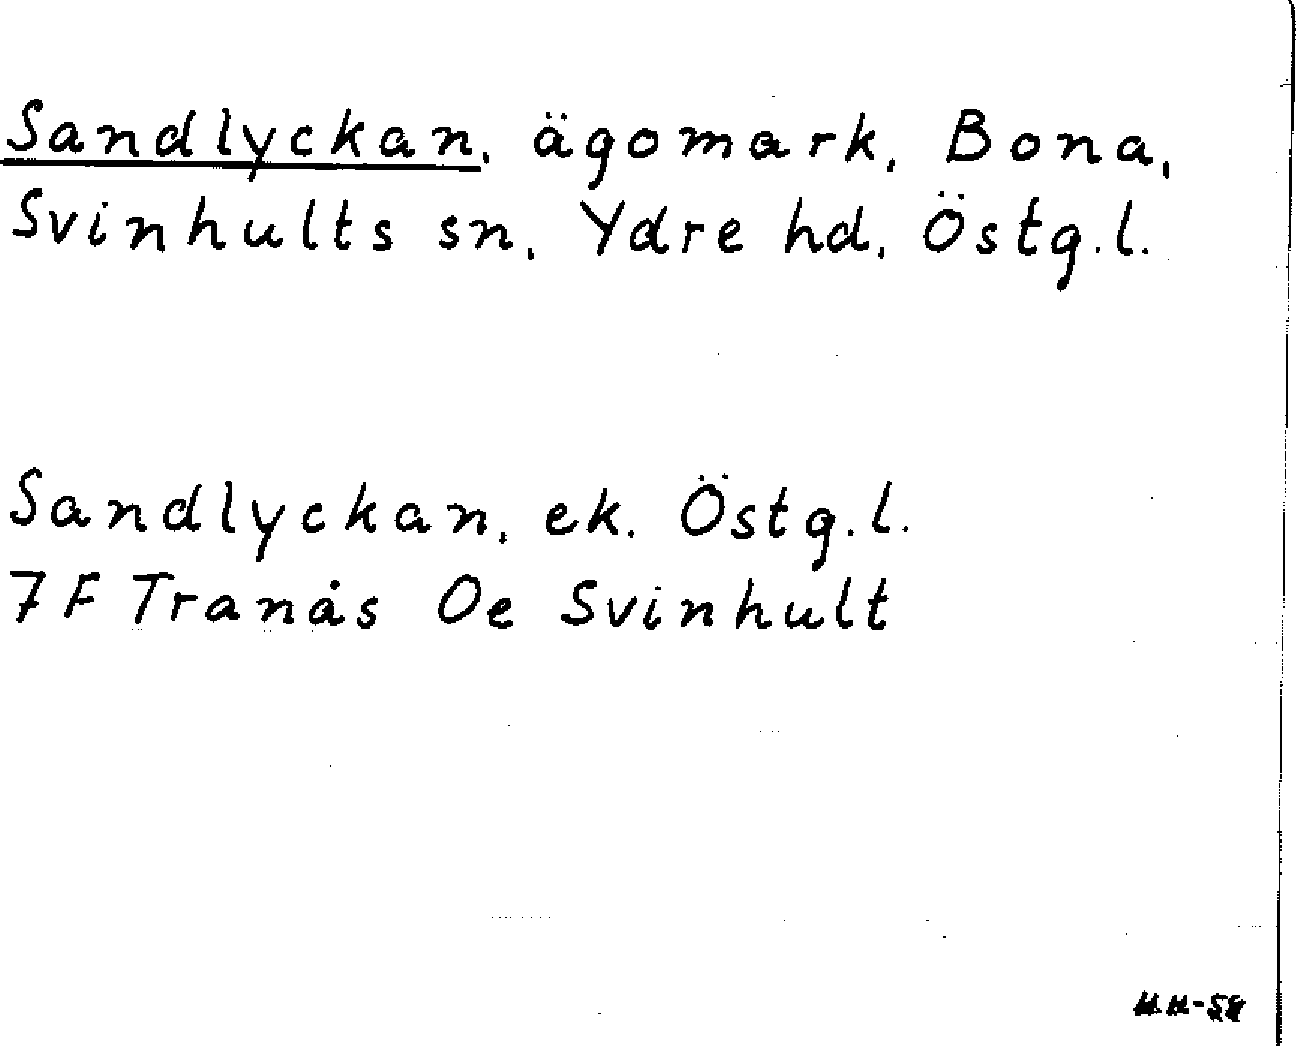 Sandlyckan, ägomark, Bona,
Svinhults sn, Ydre hd, Östg.l.
Sandlyckan, ek. Östg.l.
7F Tranås Oe Svinhult